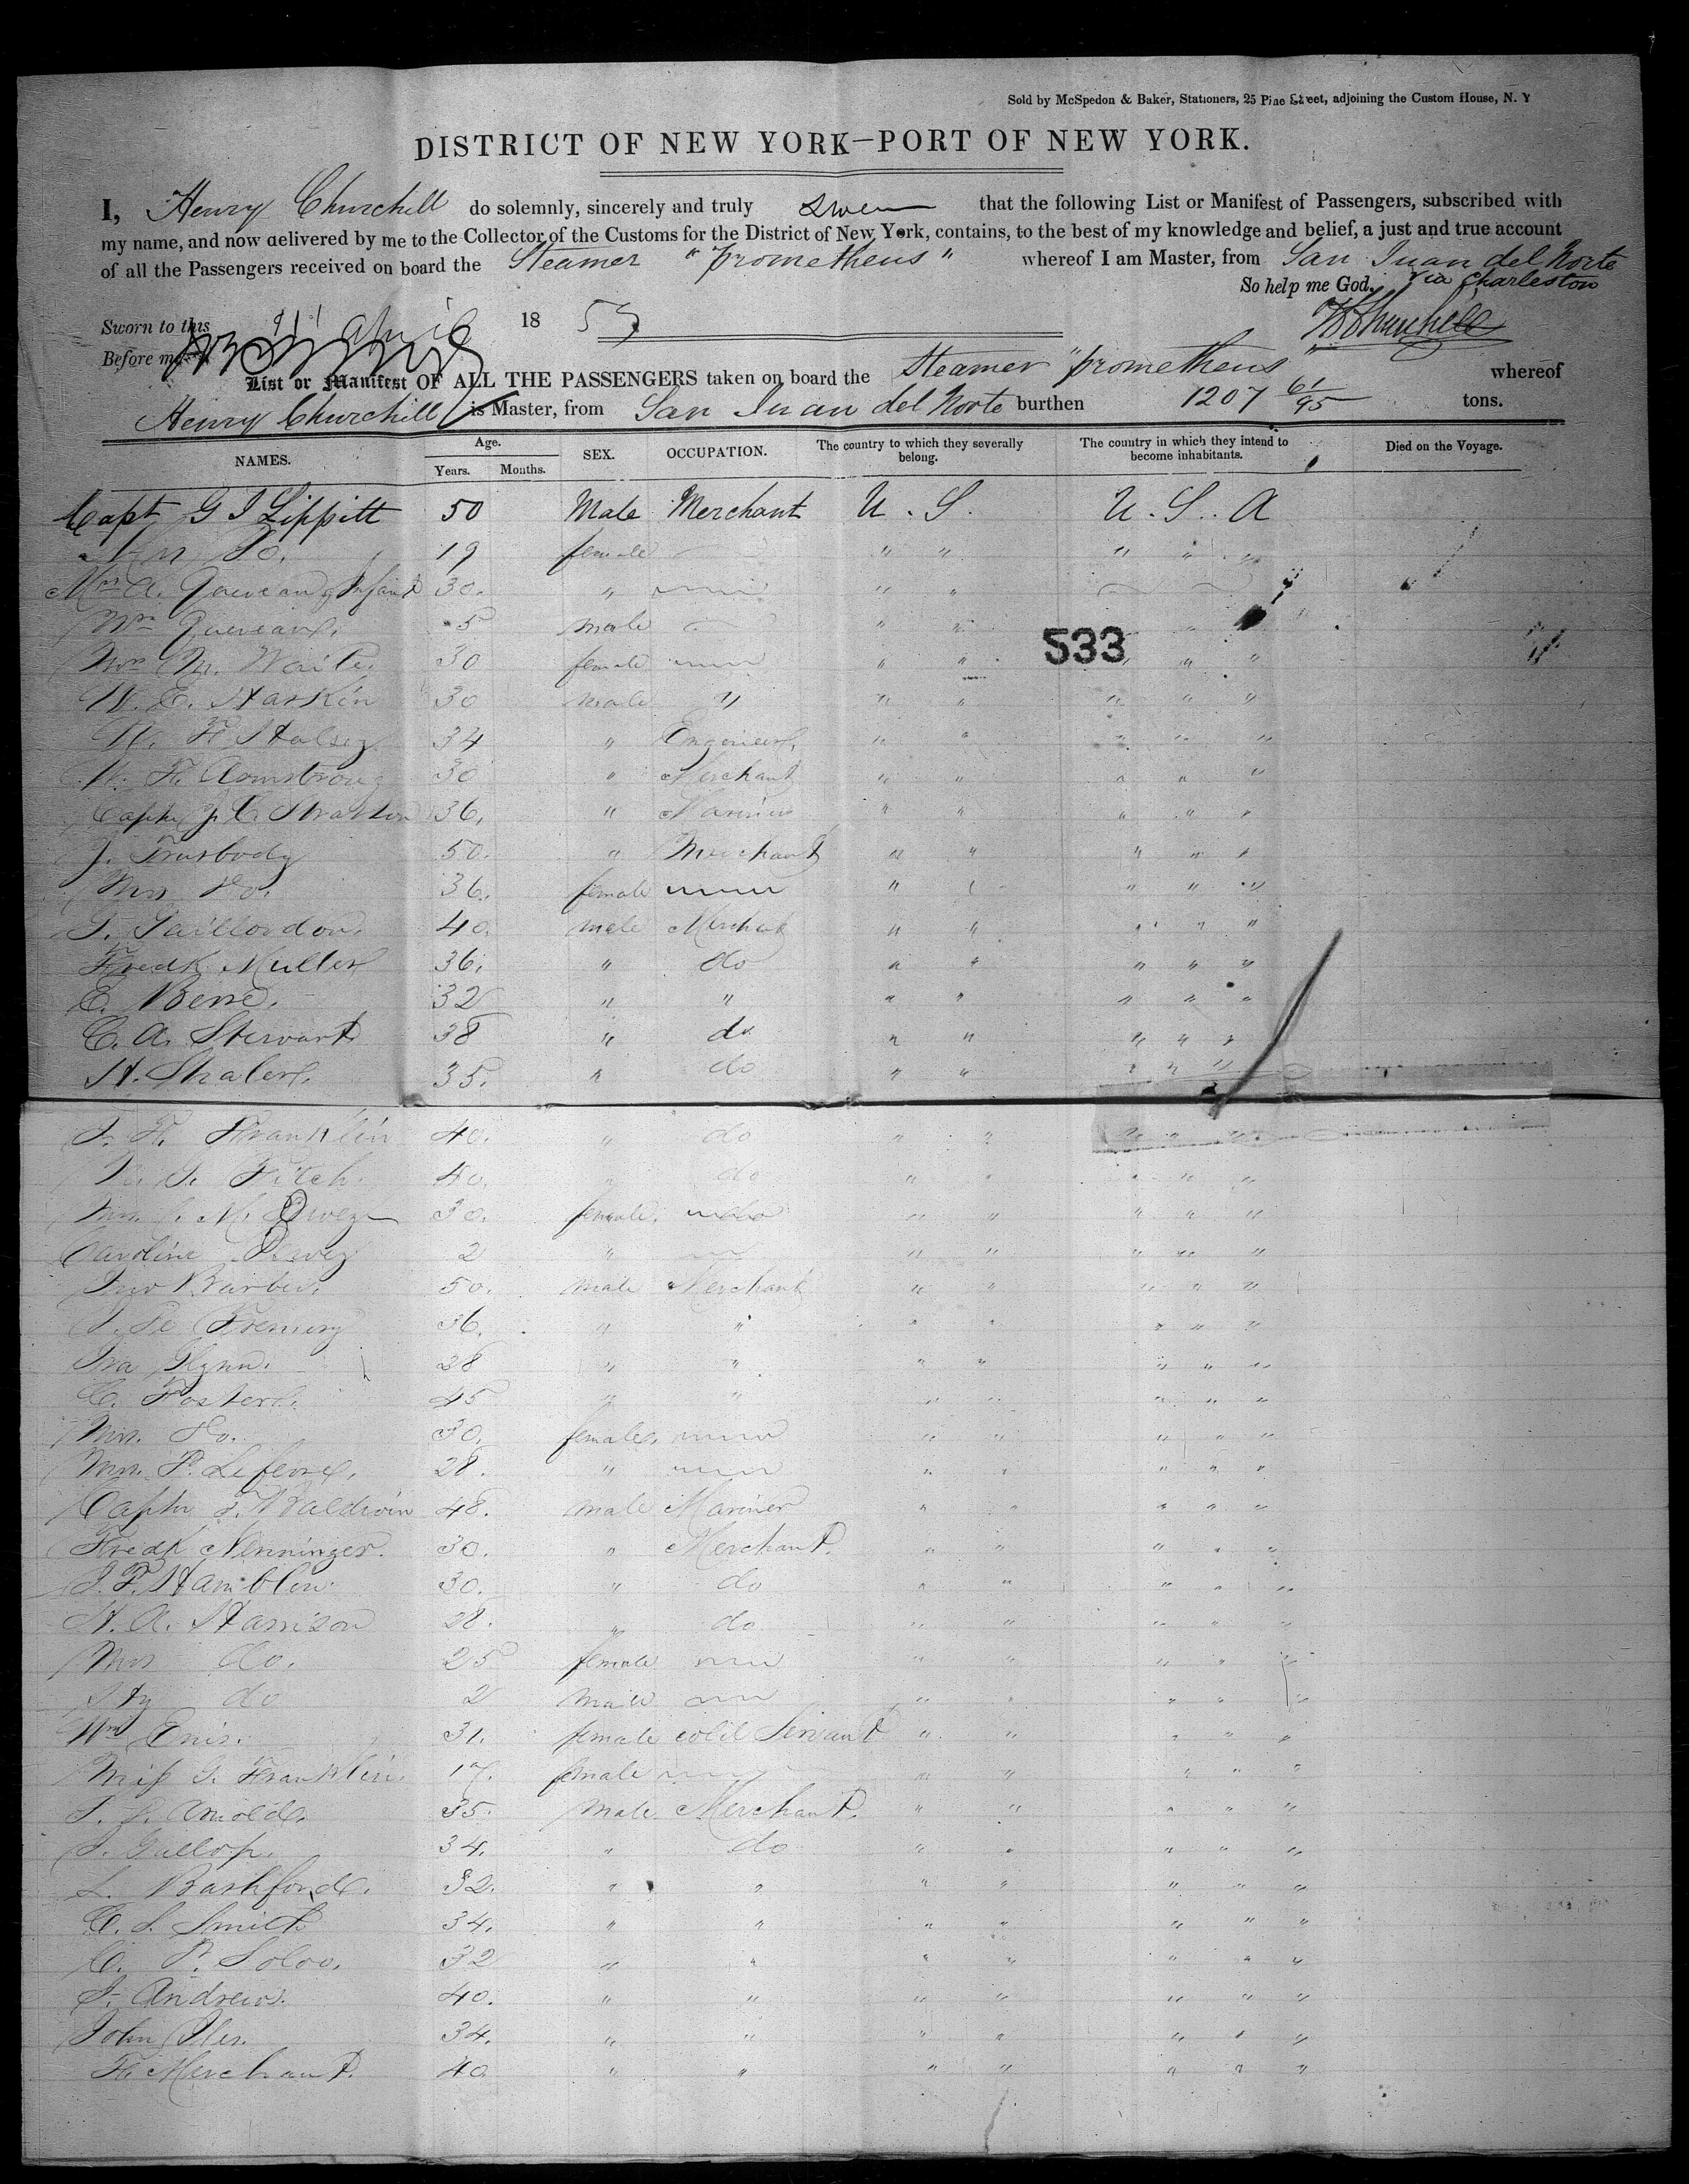 Sold by McSpedon & Baker, Stationers, 25 Pine Street, adjoining the Custom House, N. Y
DISTRICT OF NEW YORK—PORT OF NEW YORK.
I, Henry Churchill do solemnly, sincerely and truly swear that the following List or Manifest of Passengers, subscribed with
my name, and now delivered by me to the Collector of the Customs for the District of New York, contains, to the best of my knowledge and belief, a just and true account
of all the Passengers received on board the Steamer "prometheus" whereof I am Master, from San Juan del Norte
So help me God. via Charleston
Sworn to this April 1853 HChurchill
Before me
List or Manifest OF ALL THE PASSENGERS taken on board the Steamer "prometheus" whereof
Henry Churchill is Master, from San Juan del Norte burthen 1207 61/95 tons.
NAMES. Age. Years. Months. SEX. OCCUPATION. The country to which they severally belong. The country in which they intend to become inhabitants. Died on the Voyage.
Capt G J Lippitt 50 Male Merchant U. S. U. S. A
Mrs Do. 19 female " " " " "
Mrs A. & Infant 30. " " "
5 male " " " "
533
Mrs M. Waite. 30 female " " " " "
W. E. Haskin 30 male " " " " " "
W. F. Halsey 34 " Engineer, " " " " "
W. F. Armstrong 30 " Merchant " " " " "
Captn J. C. Stratton 36, " Mariner " " " " "
J. Trusbody 50. " Merchant " " " " "
Mrs Do. 36. female " " " " "
40. male Merchant " " " " "
Fredk Muller 36. " do " " " " "
E. 32 " " " " " " "
C. A. Stewart 38 " do " " " " "
H. Shaler. 35. " do " " " " "
J. F. Franklin 40. " do " " " " "
Fitch. 40. " do " " " " "
Mrs M. 30. female. " " " " "
Caroline 2 " " " " " "
Jno Barber. 50. male Merchant " " " " "
J. De Fremery 36. " " " " " " "
Ira Glynn. 28 " " " " " " "
C. Foster. 45 " " " " " " "
Mrs. Do. 30. female. " " " " "
Mrs. P. Lefevre, 28. " " " " " "
Captn J. Baldwin 48. male Mariner " " " " "
Fredk Nenninger. 30. " Merchant. " " " " "
J. F. Hamblin. 30. " do " " " " "
H. A. Harrison 28. " do " " " " "
Mrs do. 25 female " " " " "
do 2 male " " " " "
Wm Enis. 31. female cold Servant " " " " "
Miss J. Franklin. 17. female " " " " "
Arnold. 35. male Merchant. " " " " "
J. Gallop. 34. " do " " " " "
L. Bashford. 32. " " " " " " "
C. S. Smith 34. " " " " " " "
C. P. Soloo. 32 " " " " " " "
J. Andrew. 40. " " " " " " "
John Iler. 34. " " " " " " "
F. Merchant. 40 " " " " " " "